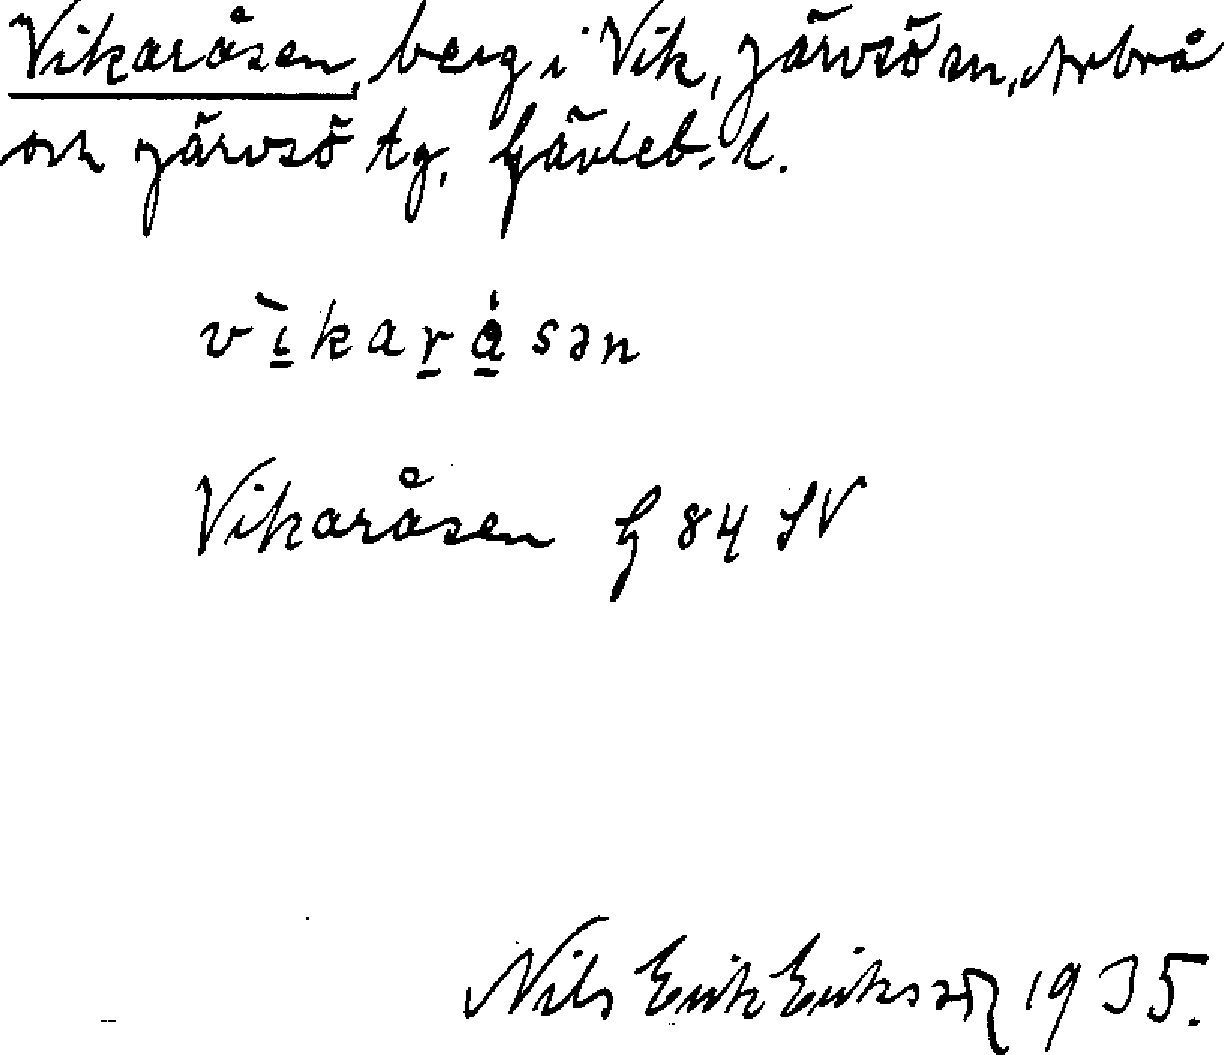 Vikaråsen, berg i Vik, Järvsö sn, Arbrå
och Järvsö tg, Gävleb. l.
vìkaråsən
Vikaråsen G 84 SV
Nils Erik Eriksson 1935.